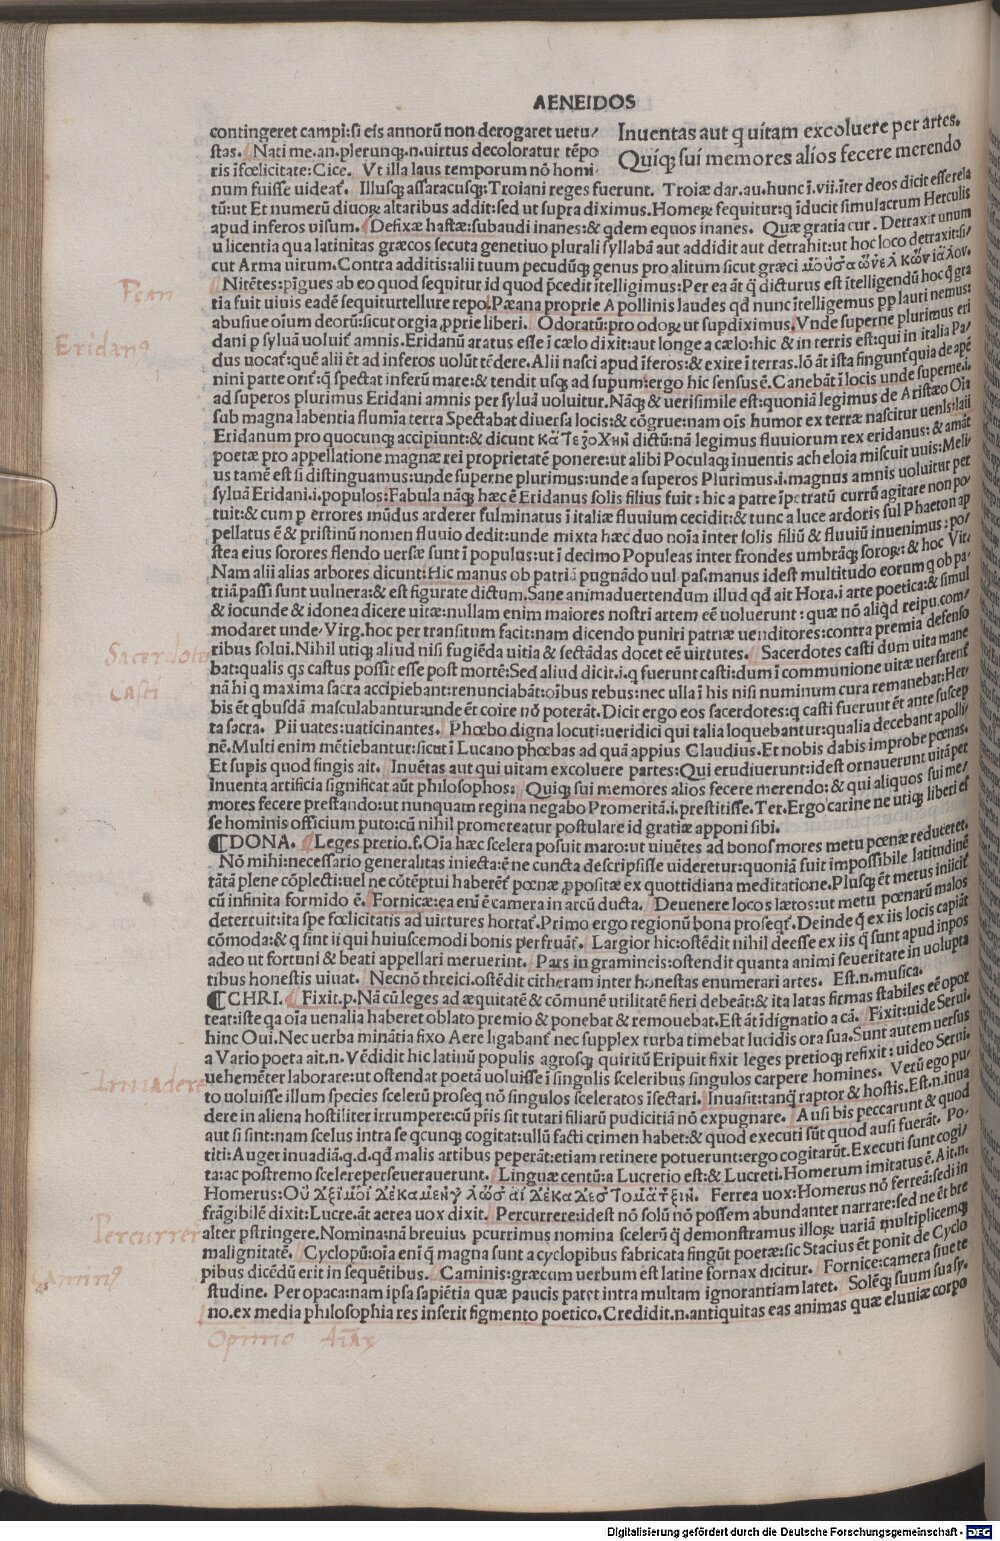 AENEIDOS
contingeret campi:si eis annorū non derogaret uetu/
stas. Nati me.an.plerunq;.n.uirtus decoloratur tēpo
ris īfœlicitate:Cice. Vt illa laus temporum nō homi
num fuisse uideat᷑. Illusq; assaracusq;:Troiani reges fuerunt. Troiæ dar.au.hunc ī.vii.īter deos dicit esse rela
Inuentas aut q uitam excoluere per artes.
Quiq; sui memores alios fecere merendo
tū:ut Et numerū diuoꝝ altaribus addit:sed ut supra diximus. Homeꝝ sequitur:q īducit simulacrum Herculis
apud inferos uisum. Defixæ hastæ:subaudi inanes:& qdem equos inanes. Quæ gratia cur. Detraxit unum
u licentia qua latinitas græcos secuta genetiuo plurali syllabā aut addidit aut detrahit:ut hoc loco detraxit:si/
cut Arma uirum.Contra additis:alii tuum pecudūq; genus pro alitum sicut græci
Nitētes:pīgues ab eo quod sequitur id quod p̄cedit ītelligimus:Per ea āt q̄ dicturus est ītelligendū hoc q̄ gra
tia fuit uiuis eadē sequiturtellure repo.Pæana proprie Apollinis laudes qd̄ nunc ītelligemus pp lauri nemus:
abusiue oīum deorū:sicut orgia ꝓprie liberi. Odoratū:pro odoꝝ ut supdiximus.Vnde superne plurimus eri
dani p syluā uoluit᷑ amnis. Eridanū aratus esse ī cælo dixit:aut longe a cælo:hic & in terris est:qui in italia Pa/
dus uocat᷑:quē alii ēt ad inferos uolūt tēdere.Alii nasci apud īferos:& exire ī terras.Iō āt ista fingunt᷑ quia de apē
nini parte orit᷑:q̄ spectat inferū mare:& tendit usq; ad supum:ergo hic sensus ē.Canebāt ī locis unde superne.i.
ad superos plurimus Eridani amnis per syluā uoluitur.Nāq; & uerisimile est:quoniā legimus de Aristæo Oīa
sub magna labentia flumīa terra Spectabat diuersa locis:& cōgrue:nam oīs humor ex terræ nascitur uenis:latī
Eridanum pro quocunq; accipiunt:& dicunt κατεξοχην dictū:nā legimus fluuiorum rex eridanus: & amāt
poetæ pro appellatione magnæ rei proprietatē ponere:ut alibi Poculaq; inuentis acheloia miscuit uuis:Meli/
us tamē est si distinguamus:unde superne plurimus:unde a superos Plurimus.i.magnus amnis uoluitur per
syluā Eridani.i.populos:Fabula nāq; hæc ē Eridanus solis filius fuit: hic a patre īpetratū currū agitare non po/
tuit:& cum p errores mūdus arderet fulminatus ī italiæ fluuium cecidit:& tunc a luce ardoris sui Phaeton ap
pellatus ē & pristinū nomen fluuio dedit:unde mixta hæc duo noīa inter solis filiū & fluuiū inuenimus:po/
stea eius sorores flendo uersæ sunt ī populus:ut ī decimo Populeas inter frondes umbrāq; soroꝝ: & hoc Vir.
Nam alii alias arbores dicunt:Hic manus ob patriā pugnādo uul.pas.manus idest multitudo eorum q ob pa/
triā passi sunt uulnera:& est figurate dictum.Sane animaduertendum illud qd̄ ait Hora.i arte poetica:& simul
& iocunde & idonea dicere uitæ:nullam enim maiores nostri artem eē uoluerunt: quæ nō aliqd reipu.com/
modaret unde/Virg.hoc per transitum facit:nam dicendo puniri patriæ uenditores:contra premia defenso
ribus solui.Nihil utiq; aliud nisi fugiēda uitia & sectādas docet eē uirtutes. Sacerdotes casti dum uita mane
bat:qualis qs castus possit esse post mortē:Sed aliud dicit.i.q fuerunt casti:dum ī communione uitæ uersarent᷑
nā hi q maxima sacra accipiebant:renunciabāt:oībus rebus:nec ulla ī his nisi numinum cura remanebat:Her/
bis ēt qbusdā masculabantur:unde ēt coire nō poterāt.Dicit ergo eos sacerdotes:q casti fuerunt ēt ante suscep
ta sacra. Pii uates:uaticinantes. Phœbo digna locuti:ueridici qui talia loquebantur:qualia decebant apolli/
nē.Multi enim mētiebantur:sicut ī Lucano phœbas ad quā appius Claudius.Et nobis dabis improbe pœnas.
Et supis quod fingis ait. Inuētas aut qui uitam excoluere partes:Qui erudiuerunt:idest ornauerunt uitā pet
inuenta artificia significat aūt philosophos: Quiq; sui memores alios fecere merendo:& qui aliquos sui me/
mores fecere prestando:ut nunquam regina negabo Promeritā.i.prestitisse.Ter.Ergo carine ne utiq; liberi es
se hominis officium puto:cū nihil promereatur postulare id gratiæ apponi sibi.
¶DONA. Leges pretio.f.Oīa hæc scelera posuit maro:ut uiuētes ad bonos mores metu pœnæ reduceret.
Nō mihi:necessario generalitas iniecta:ē ne cuncta descripsisse uideretur:quoniā fuit impossibile latitudinē
tātā plene cōplecti:uel ne cōtēptui haberēt᷑ pœnæ ꝓpositæ ex quottidiana meditatione.Plusq; ēt metus iniicit᷑
cū infinita formido ē. Fornicæ:ea enī ē camera in arcū ducta. Deuenere locos lætos:ut metu pœnarū malos
deterruit:ita spe fœlicitatis ad uirtures hortat᷑.Primo ergo regionū bona proseqt᷑.Deinde q̄ ex iis locis capiāt
cōmoda:& q sint ii qui huiuscemodi bonis perfruāt᷑. Largior hic:ostēdit nihil deesse ex iis q̄ sunt apud inpos
adeo ut fortuni & beati appellari meruerint. Pars in gramineis:ostendit quanta animi seueritate in uolupta
tibus honestis uiuat. Necnō threici.ostēdit citheram inter honestas enumerari artes. Est.n.musica.
¶CHRI. Fixit.p.Nā cū leges ad æquitatē & cōmunē utilitatē fieri debeāt:& ita latas firmas stabiles eē opor
teat:iste qa oīa uenalia haberet oblato premio & ponebat & remouebat.Est āt īdignatio a cā. Fixit:uide Serui.
hinc Oui.Nec uerba minātia fixo Aere ligabant᷑ nec supplex turba timebat Iudicis ora sua.Sunt autem uersus
a Vario poeta ait.n.Vēdidit hic latinū populis agrosq; quiritū Eripuit fixit leges pretioq; refixit: uideo Serui.
uehemēter laborare:ut ostendat poetā uoluisse ī singulis sceleribus singulos carpere homines. Verū ego pu/
to uoluisse illum species scelerū proseq nō singulos sceleratos īsectari. Inuasit:tanq̄ raptor & hostis.Est.n.inua
dere in aliena hostiliter irrumpere:cū p̄ris sit tutari filiarū pudicitiā nō expugnare. Ausi bis peccarunt & quod
aut si sint:nam scelus intra se qcunq; cogitat:ullū facti crimen habet:& quod executi sūt quod ausi fuerāt. Po/
titi:Auget inuadiā.q.d.qd̄ malis artibus peperāt:etiam retinere potuerunt:ergo cogitarūt.Executi sunt cogi/
ta:ac postremo scelere perseuerauerunt. Linguæ centū:a Lucretio est:& Lucreti.Homerum imitatus ē.Ait.n.
Homerus: Ferrea uox:Homerus nō ferreā:sed in
frāgibilē dixit:Lucre.āt aerea uox dixit. Percurrere:idest nō solū nō possem abundanter narrare:sed ne ēt bre
alter pstringere.Nomina:nā breuius pcurrimus nomina scelerū q̄ demonstramus illoꝝ uariā multiplicemq;
malignitatē. Cyclopū:oīa enī q̄ magna sunt a cyclopibus fabricata fingūt poetæ:sic Stacius ēt ponit de Cyclo
pibus dicēdū erit in sequētibus. Caminis:græcum uerbum est latine fornax dicitur. Fornice:camera siue te
studine. Per opaca:nam ipsa sapiētia quæ paucis patet intra multam ignorantiam latet. Solēq; suum sua sy.
no.ex media philosophia res inserit figmento poetico.Credidit.n.antiquitas eas animas quæ eluuiæ corpo
Pęan
Eridanꝰ
Sacerdotes
Casti
Inuadere
Percurrere
Caminꝰ
Opinio
Digitalisierung gefördert durch die Deutsche Forschungsgemeinschaft - DFG